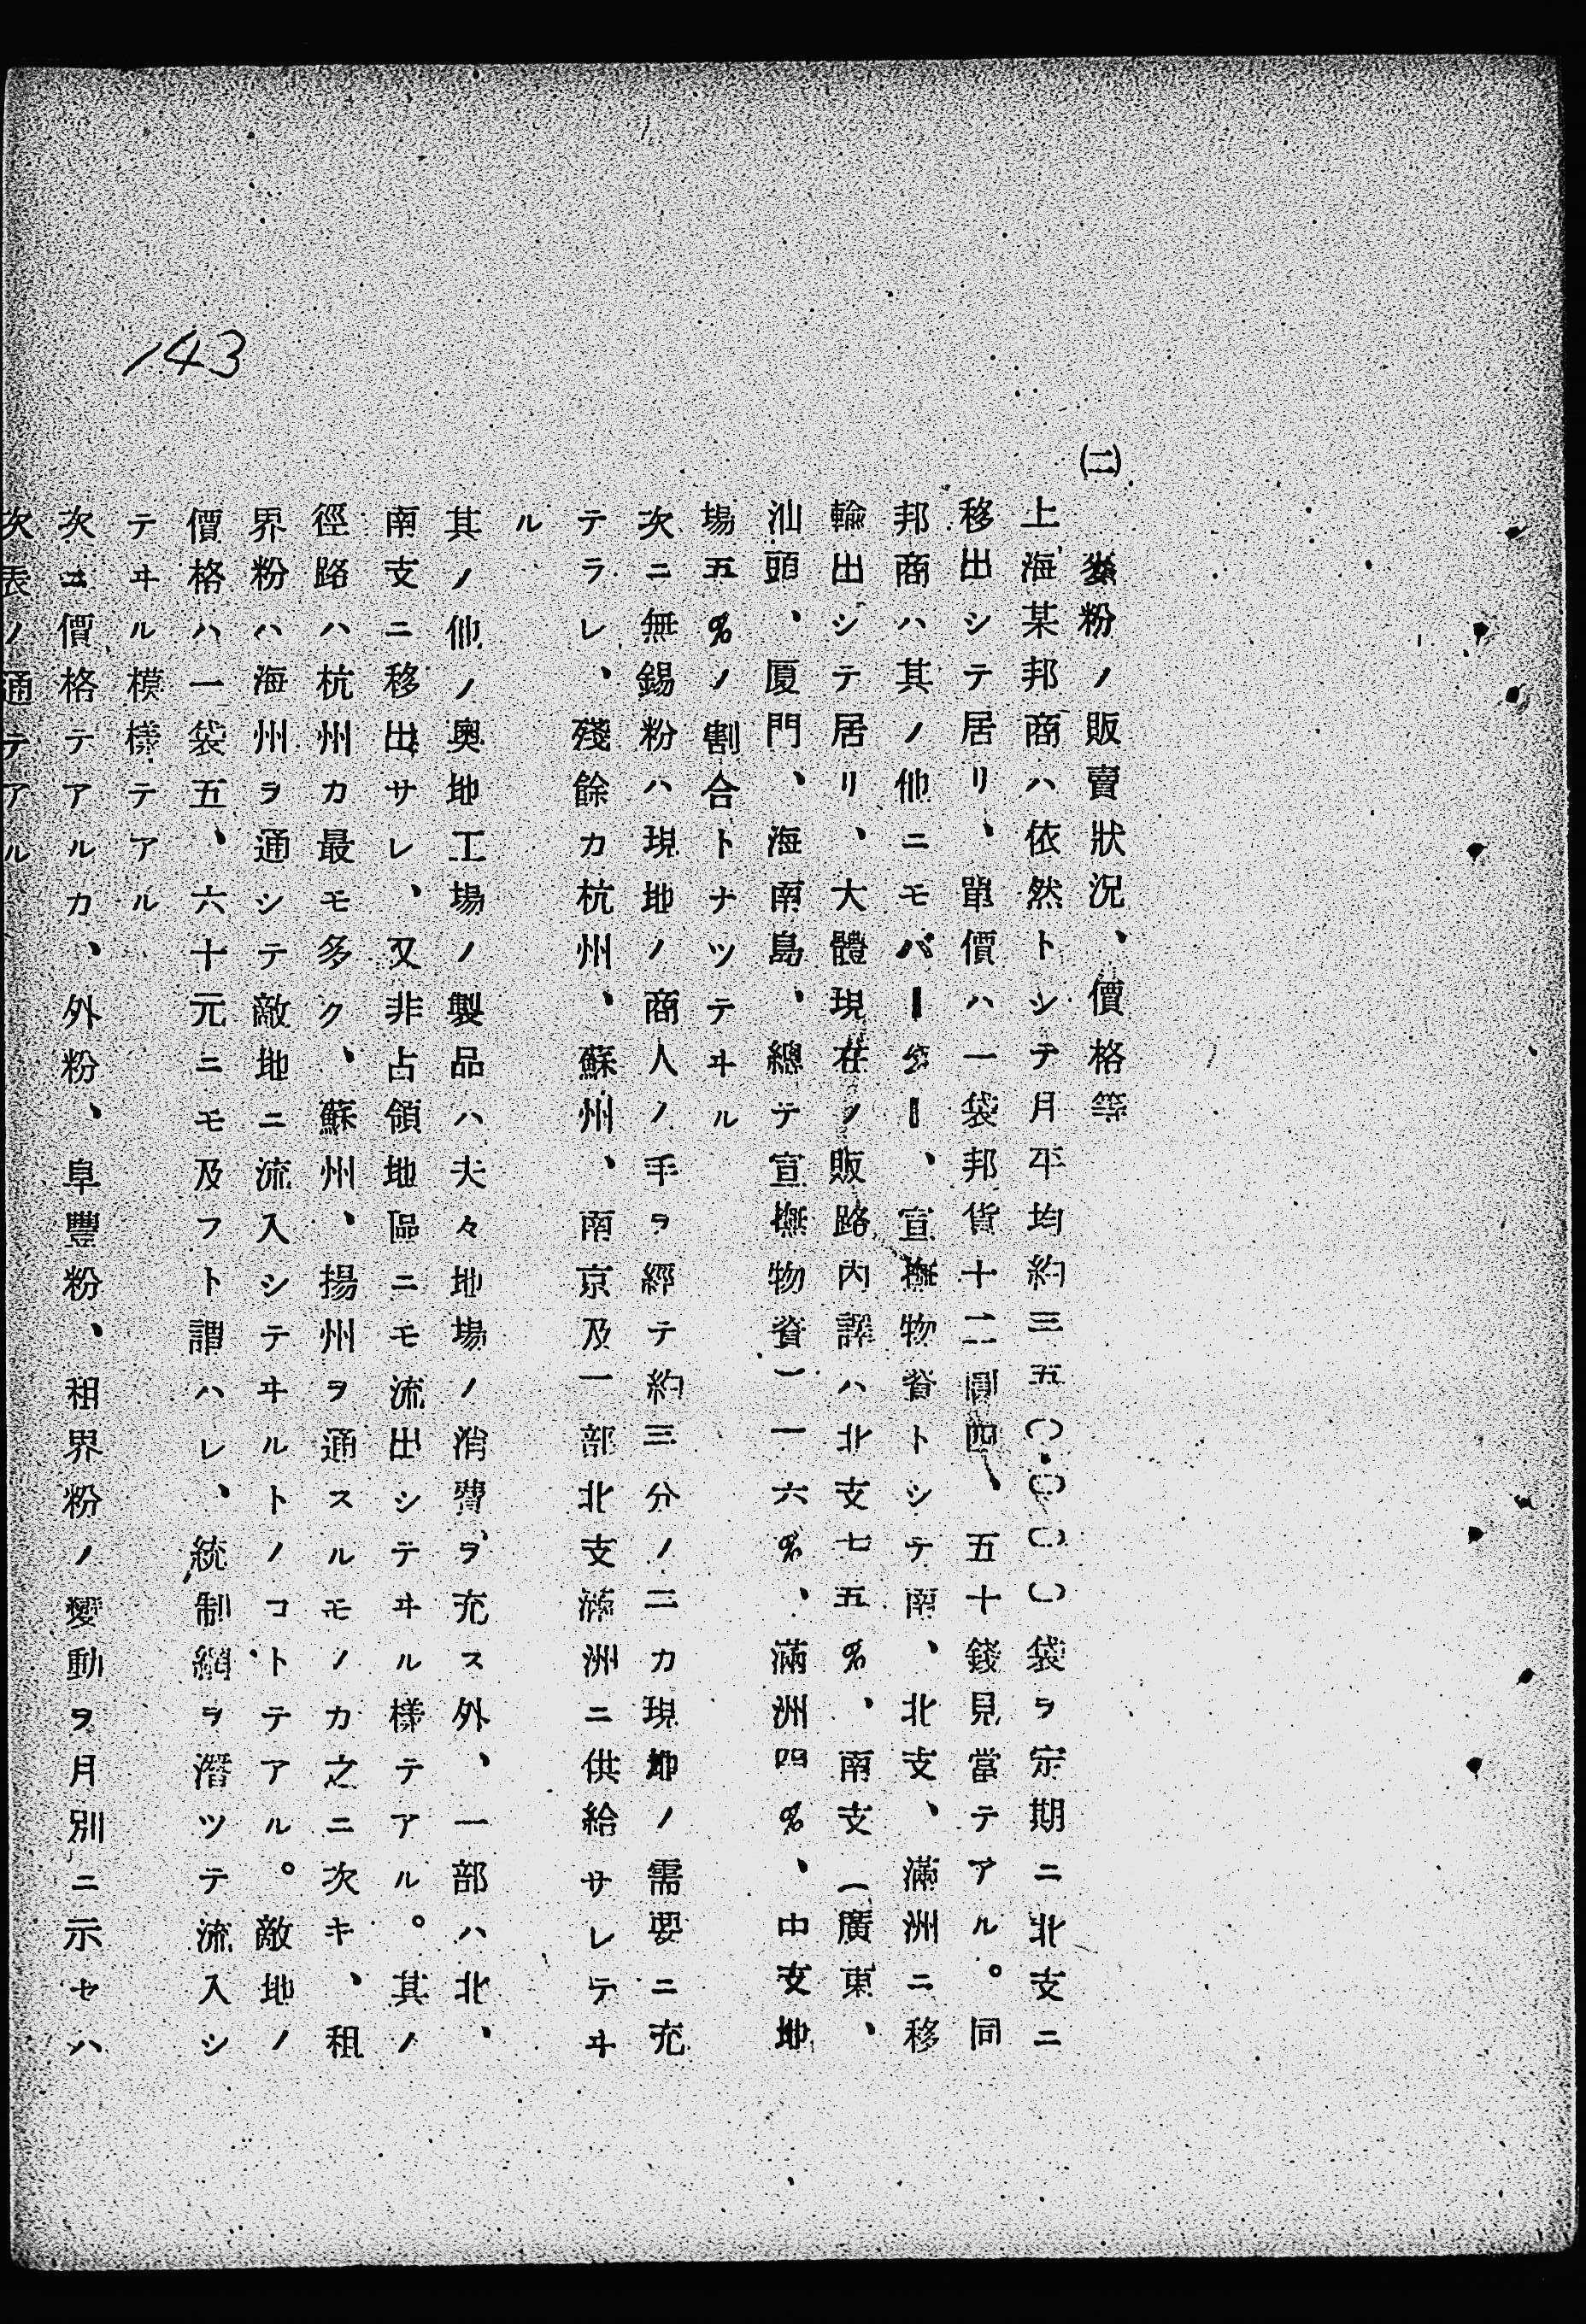 143
㈡ 麥粉ノ販賣狀況、價格等
上海某邦商ハ依然トシテ月平均約三五〇、〇〇〇袋ヲ定期ニ北支ニ
移出シテ居リ、單價ハ一袋邦貨十二圓四、五十錢見當テアル。同
邦商ハ其ノ他ニモバーター、宣撫物資トシテ南、北支、滿洲ニ移
輸出シテ居リ、大體現在ノ販路內譯ハ北支七五%、南支(廣東、
汕頭、厦門、海南島、總テ宣撫物資)一六%、滿洲四%、中支地
場五%ノ割合トナツテヰル
次ニ無錫粉ハ現地ノ商人ノ手ヲ經テ約三分ノ二カ現地ノ需要ニ充
テラレ、殘餘カ杭州、蘇州、南京及一部北支滿洲ニ供給サレテヰ
ル
其ノ他ノ奧地工場ノ製品ハ夫々地場ノ消費ヲ充ス外、一部ハ北、
南支ニ移出サレ、又非占領地區ニモ流出シテヰル樣テアル。其ノ
徑路ハ杭州カ最モ多ク、蘇州、揚州ヲ通スルモノカ之ニ次キ、租
界粉ハ海州ヲ通シテ敵地ニ流入シテヰルトノコトテアル。敵地ノ
價格ハ一袋五、六十元ニモ及フト謂ハレ、統制網ヲ潛ツテ流入シ
テヰル模樣テアル
次ニ價格テアルカ、外粉、阜豐粉、租界粉ノ變動ヲ月別ニ示セハ
次表ノ通テアル